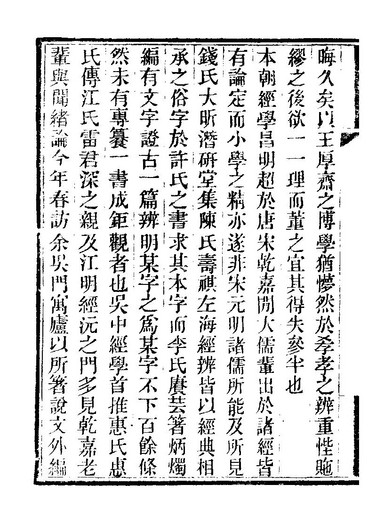 晦久矣以王厚齋之博學猶懜然於𡥉孝之辨重悂貤
繆之後欲一一理而董之宜其得失參半也
本朝經學昌明超於唐宋乾嘉閒大儒輩出於諸經皆
有論定而小學之精亦遂非宋元明諸儒所能及所見
錢氏大昕潛研堂集陳氏壽祺左海經辨皆以經典相
承之俗字於許氏之書求其本字而李氏賡芸箸炳燭
編有文字證古一篇辨明某字之爲某字不下百餘條
然未有專纂一書成鉅觀者也吳中經學首推惠氏惠
氏傳江氏雷君深之親及江明經沅之門多見乾嘉老
輩與聞緒論今年春訪余吳門寓廬以所箸說文外編